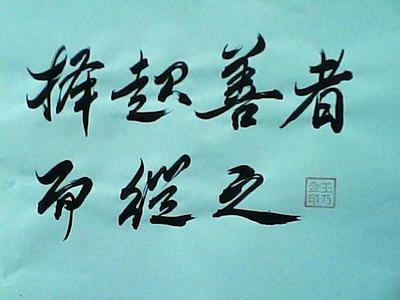 择起善者
而縱之
王乃金印